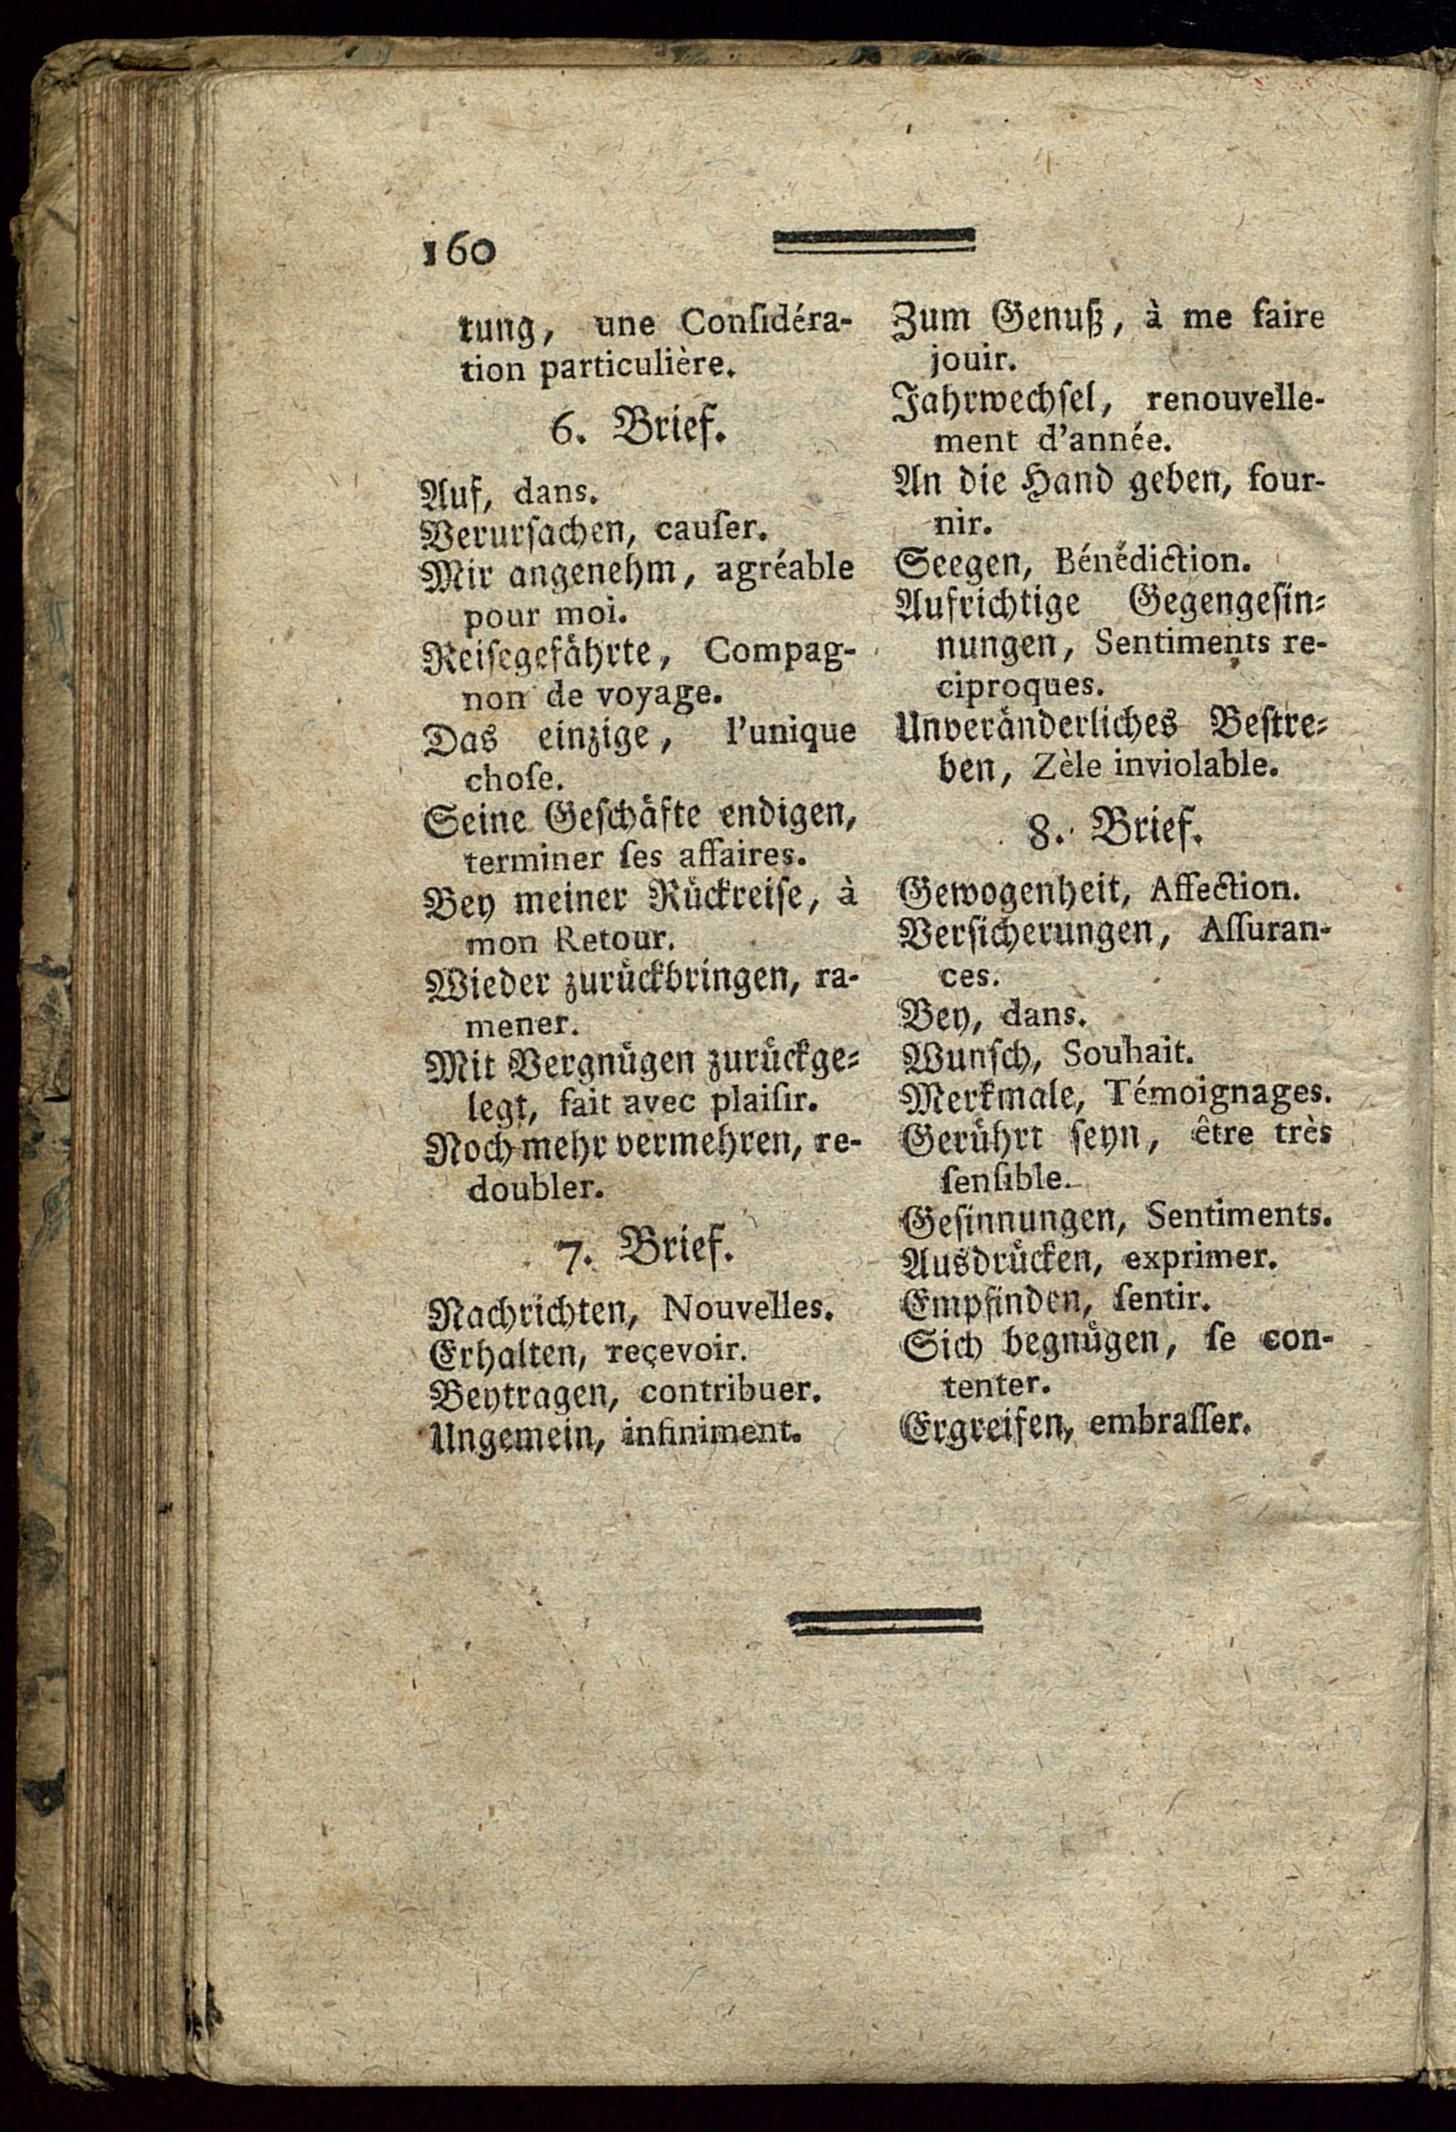 160
tung, une Conſidéra-
tion particulière.
6. Brief.
Auf, dans.
Verurſachen, cauſer.
Mir angenehm, agréable
pour moi.
Reiſegefährte, Compag-
non de voyage.
Das einzige, l'unique
choſe.
Seine Geſchäfte endigen,
terminer ſes affaires.
Bey meiner Rückreiſe, à
mon Retour.
Wieder zurückbringen, ra-
mener.
Mit Vergnügen zurückge-
legt, fait avec plaiſir.
Noch mehr vermehren, re-
doubler.
7. Brief.
Nachrichten, Nouvelles.
Erhalten, reçevoir.
Beytragen, contribuer.
Ungemein, infiniment.
Zum Genuß, à me faire
jouir.
Jahrwechſel, renouvelle-
ment d'année.
An die Hand geben, four-
nir.
Seegen, Bénédiction.
Aufrichtige Gegengeſin-
nungen, Sentiments re-
ciproques.
Unveränderliches Beſtre-
ben, Zèle inviolable.
8. Brief.
Gewogenheit, Affection.
Verſicherungen, Aſſuran-
ces.
Bey, dans.
Wunſch, Souhait.
Merkmale, Témoignages.
Gerührt ſeyn, être très
ſenſible.
Geſinnungen, Sentiments.
Ausdrücken, exprimer.
Empfinden, ſentir.
Sich begnügen, ſe con-
tenter.
Ergreifen, embraſſer.